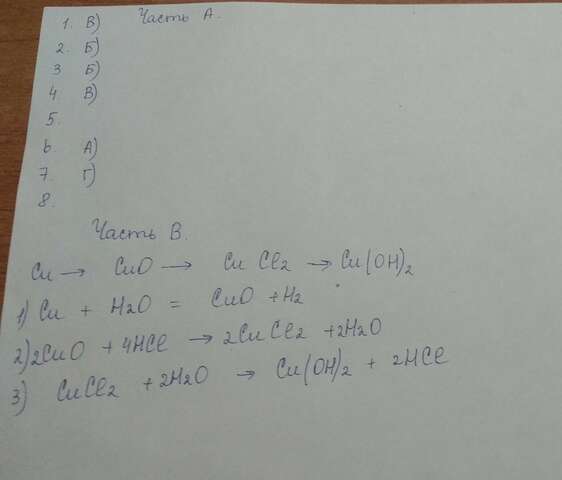 Часть А.
1. В)
2. Б)
3 Б)
4. В)
5.
6. А)
7. Г)
8.
Часть В.
Cu → CuO → CuCl2 → Cu(OH)2
1) Cu + H2O = CuO + H2
2) 2CuO + 4HCl → 2CuCl2 + 2H2O
3) CuCl2 + 2H2O → Cu(OH)2 + 2HCl